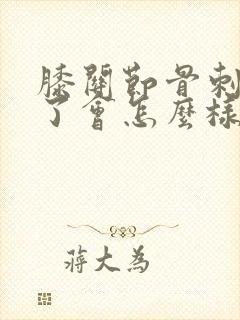 膝關節骨刺
了會怎麼樣
蔣大為